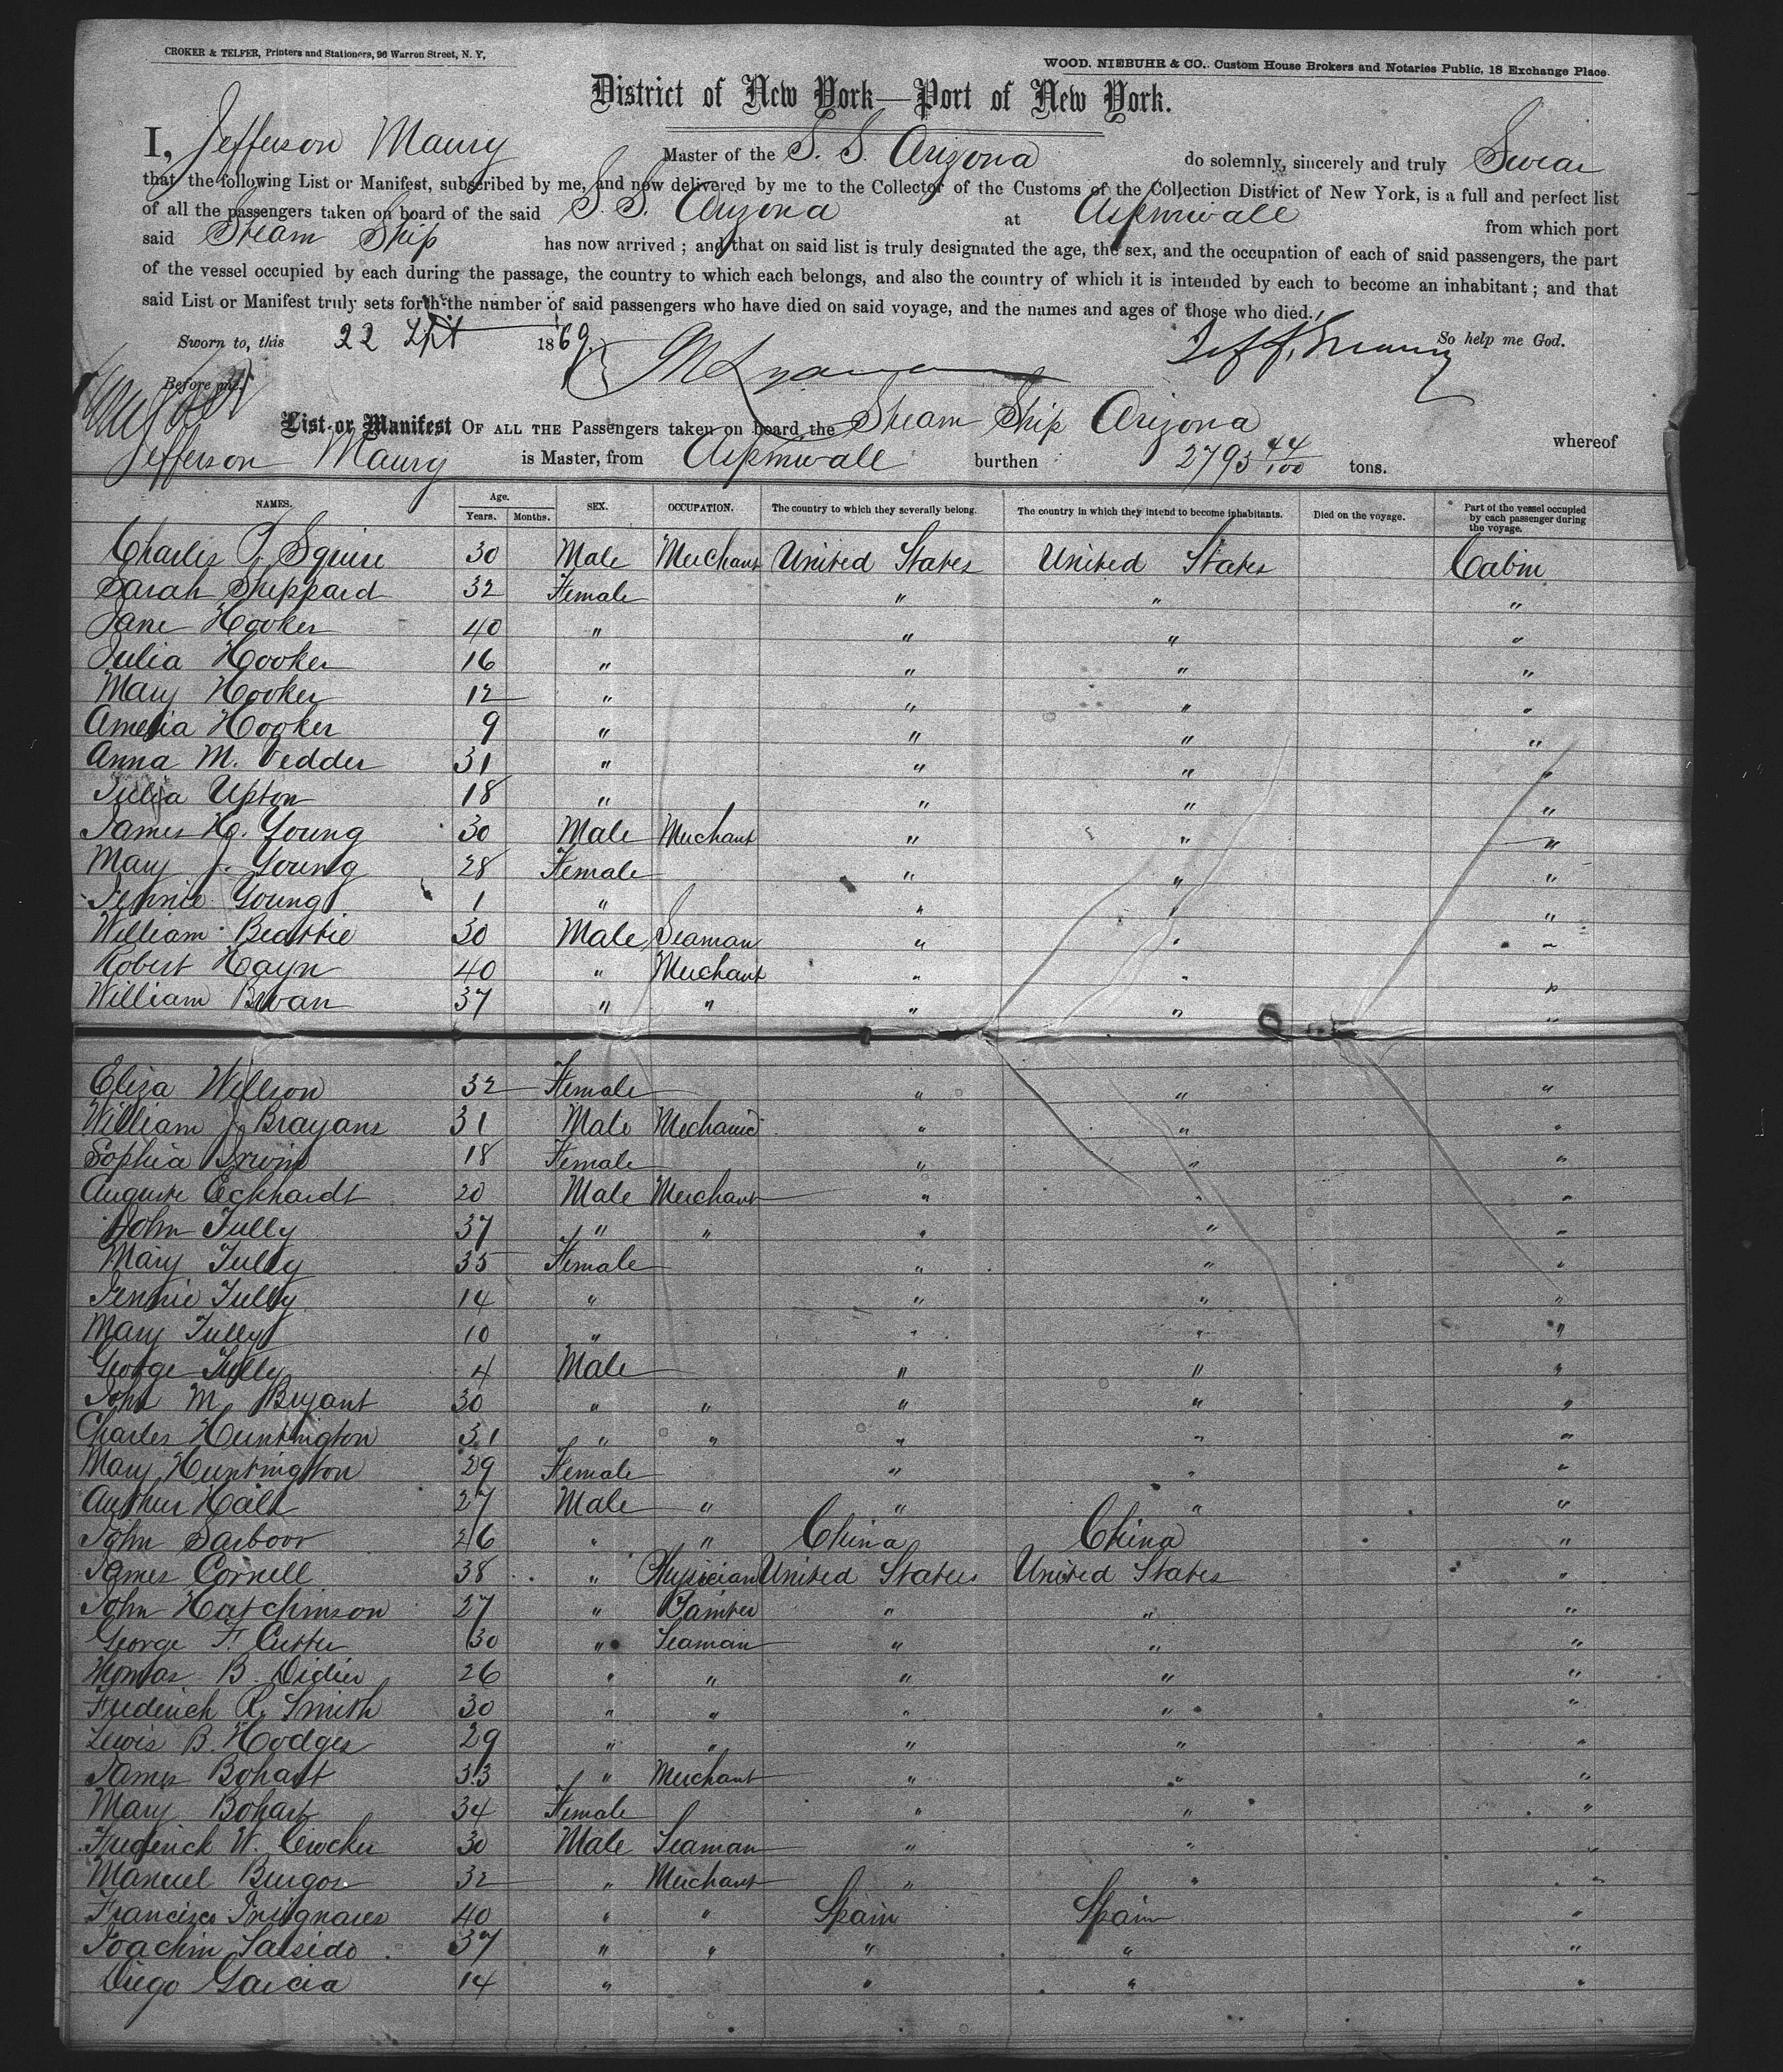 CROKER & TELFER, Printers and Stationers, 96 Warren Street, N. Y,
WOOD. NIEBUHR & CO., Custom House Brokers and Notaries Public, 18 Exchange Place.
District of New York—Port of New York.
I, Jefferson Maury Master of the S. S. Arizona do solemnly, sincerely and truly Swear
that the following List or Manifest, subscribed by me, and now delivered by me to the Collector of the Customs of the Collection District of New York, is a full and perfect list
of all the passengers taken on board of the said S. S. Arizona at Aspinwall from which port
said Steam Ship has now arrived ; and that on said list is truly designated the age, the sex, and the occupation of each of said passengers, the part
of the vessel occupied by each during the passage, the country to which each belongs, and also the country of which it is intended by each to become an inhabitant ; and that
said List or Manifest truly sets forth the number of said passengers who have died on said voyage, and the names and ages of those who died.
Sworn to, this 22 Sept 1869. Jeff. Maury So help me God.
Before me.
List or Manifest OF ALL THE Passengers taken on board the Steam Ship Arizona whereof
Jefferson Maury is Master, from Aspinwall burthen 2793 44/100 tons.
NAMES. Age. Years. Months. SEX. OCCUPATION. The country to which they severally belong. The country in which they intend to become inhabitants. Died on the voyage. Part of the vessel occupied by each passenger during the voyage.
Charles P. Squire 30 Male Merchant United States United States Cabin
Sarah Sheppard 32 Female " " "
Jane Hooker 40 " " " "
Julia Hooker 16 " " " "
Mary Hooker 12 " " " "
Amelia Hooker 9 " " " "
Anna M. Vedder 31 " " " "
Julia Upton 18 " " " "
James H. Young 30 Male Merchant " " "
Mary J. Young 28 Female " " "
Jennie Young 1 " " " "
William Beattie 30 Male Seaman " " "
Robert Hayn 40 " Merchant " " "
William Bwan 37 " " " " "
Eliza Willson 32 Female " " "
William J Brayans 31 Male Mechanic " " "
Sophia Irwin 18 Female " " "
Auguste Eckhardt 20 Male Merchant " " "
John Tully 37 " " " " "
Mary Tully 35 Female " " "
Jennie Tully 14 " " " "
Mary Tully 10 " " " "
George Tully 4 Male " " "
John M. Bryant 30 " " " " "
Charles Huntington 31 " " " " "
Mary Huntington 29 Female " " "
Arthur Hall 27 Male " " " "
John Sarboor 26 " " China China "
James Cornell 38 " Physician United States United States "
John Hutchinson 27 " Painter " " "
George F. Cutter 30 " Seaman " " "
Thomas B. Didier 26 " " " " "
Frederick R. Smith 30 " " " " "
Lewis B. Hodges 29 " " " " "
James Bohart 33 " Merchant " " "
Mary Bohart 34 Female " " "
Frederick W. Crocker 30 Male Seaman " " "
Manuel Burgos 32 " Merchant " " "
Francisco 40 " " Spain Spain "
Joachim Salsido 37 " " " " "
Diego Garcia 14 " " " "